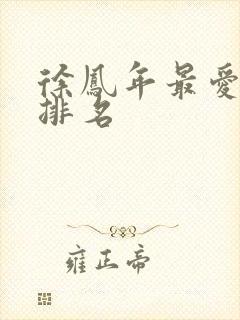 徐鳳年最愛
排名
雍正帝